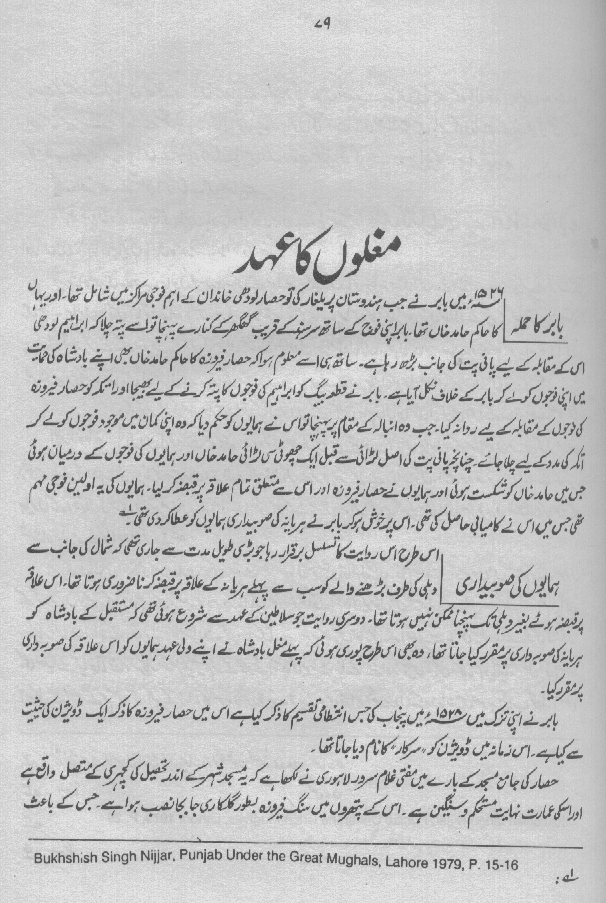 ۷۹
مغلوں کا عہد
بابر کا حملہ
۱۵۲۶ء میں بابر نے جب ہندوستان پر یلغار کی تو حصار لودھی خاندان کے اہم فوجی مراکز میں شامل تھا۔ اور یہاں
کا حاکم حامد خاں تھا۔ بابر اپنی فوج کے ساتھ سرہند کے قریب گھگھر کے کنارے پہنچا تو اسے پتہ چلا کہ ابراہیم لودھی
اس کے مقابلہ کے لیے پانی پت کی جانب بڑھ رہا ہے۔ ساتھ ہی اسے معلوم ہوا کہ حصار فیروزہ کا حاکم حامد خاں بھی اپنے بادشاہ کی حمایت
میں اپنی فوجوں کو لے کر بابر کے خلاف نکل آیا ہے۔ بابر نے قطع بیگ کو ابراہیم کی فوجوں کا پتہ کرنے کے لیے بھیجا اور اتکہ کو حصار فیروزہ
کی فوجوں کے مقابلہ کے لیے روانہ کیا۔ جب وہ انبالہ کے مقام پر پہنچا تو اس نے ہمایوں کو حکم دیا کہ وہ اپنی کمان میں موجود فوجوں کو لے کر
اتکہ کی مدد کے لیے چلا جائے۔ چنانچہ پانی پت کی اصل لڑائی سے قبل ایک چھوٹی سی لڑائی حامد خاں اور ہمایوں کی فوجوں کے درمیان ہوئی
جس میں حامد خاں کو شکست ہوئی اور ہمایوں نے حصار فیروزہ اور اس سے متعلق تمام علاقہ پر قبضہ کر لیا۔ ہمایوں کی یہ اولین فوجی مہم
تھی جس میں اس نے کامیابی حاصل کی تھی۔ اس پر خوش ہو کر بابر نے ہریانہ کی صوبیداری ہمایوں کو عطا کر دی تھی۔ ۱؎
ہمایوں کی صوبیداری
اس طرح اس روایت کا تسلسل برقرار رہا جو بڑی طویل مدت سے جاری تھی کہ شمال کی جانب سے
دہلی کی طرف بڑھنے والے کو سب سے پہلے ہریانہ کے علاقہ پر قبضہ کرنا ضروری ہوتا تھا۔ اس علاقہ
پر قبضہ ہوئے بغیر دہلی تک پہنچنا ممکن نہیں ہوتا تھا۔ دوسری روایت جو سلاطین کے عہد سے شروع ہوئی تھی کہ مستقبل کے بادشاہ کو
ہریانہ کی صوبہ داری پر مقرر کیا جاتا تھا، وہ بھی اس طرح پوری ہوئی کہ پہلے مغل بادشاہ نے اپنے ولی عہد ہمایوں کو اس علاقہ کی صوبہ داری
پر مقرر کیا۔
بابر نے اپنی تزک میں ۱۵۲۸ء میں پنجاب کی جس انتظامی تقسیم کا ذکر کیا ہے اس میں حصار فیروزہ کا ذکر ایک ڈویژن کی حیثیت
سے کیا ہے۔ اس زمانہ میں ڈویژن کو "سرکار" کا نام دیا جاتا تھا۔
حصار کی جامع مسجد کے بارے میں مفتی غلام سرور لاہوری نے لکھا ہے کہ یہ مسجد شہر کے اندر تحصیل کی کچہری کے متصل واقع ہے
اور اسکی عمارت نہایت مستحکم و سنگین ہے۔ اس کے پتھروں میں سنگ فیروزہ بطور گلکاری جابجا نصب ہوا ہے۔ جس کے باعث
Bukhshish Singh Nijjar, Punjab Under the Great Mughals, Lahore 1979, P. 15-16
۱؎ :